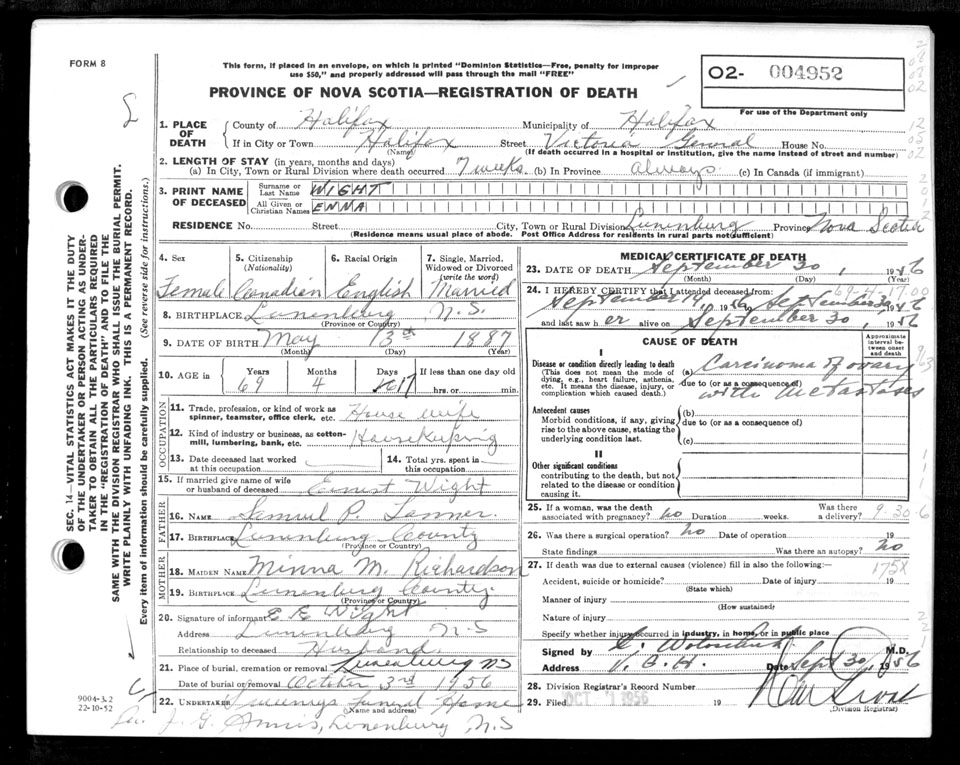 FORM 8
This form, if placed in an envelope, on which is printed "Dominion Statistics—Free, penalty for improper
use $50," and properly addressed will pass through the mail "FREE"
O2- 004952
PROVINCE OF NOVA SCOTIA—REGISTRATION OF DEATH
For use of the Department only
1. PLACE OF DEATH
County of Halifax Municipality of Halifax
If in City or Town Halifax Street Victoria General House No.
(Name) (If death occurred in a hospital or institution, give the name instead of street and number)
2. LENGTH OF STAY (in years, months and days)
(a) In City, Town or Rural Division where death occurred 7 weeks. (b) In Province always (c) In Canada (if immigrant)
3. PRINT NAME OF DECEASED
Surname or Last Name WIGHT
All Given or Christian Names EMMA
RESIDENCE No. Street City, Town or Rural Division Lunenburg Province Nova Scotia
(Residence means usual place of abode. Post Office Address for residents in rural parts not sufficient)
4. Sex Female
5. Citizenship (Nationality) Canadian
6. Racial Origin English
7. Single, Married, Widowed or Divorced (write the word) Married
8. BIRTHPLACE Lunenburg N.S.
(Province or Country)
9. DATE OF BIRTH May 13th 1887
(Month) (Day) (Year)
10. AGE in Years 69 Months 4 Days 17 If less than one day old hrs. or min.
OCCUPATION
11. Trade, profession, or kind of work as spinner, teamster, office clerk, etc. House wife
12. Kind of industry or business, as cotton-mill, lumbering, bank, etc. Housekeeping
13. Date deceased last worked at this occupation
14. Total yrs. spent in this occupation
15. If married give name of wife or husband of deceased Ernest Wight
FATHER
16. NAME Samuel P. Tanner
17. BIRTHPLACE Lunenburg County
(Province or Country)
MOTHER
18. MAIDEN NAME Minna M. Richardson
19. BIRTHPLACE Lunenburg County
(Province or Country)
20. Signature of informant E E Wight
Address Lunenburg N.S
Relationship to deceased Husband
21. Place of burial, cremation or removal Lunenburg NS
Date of burial or removal October 3rd 1956
22. UNDERTAKER Funeral Home
(Name and address)
Lunenburg, N.S
9004-3.2
22-10-52
MEDICAL CERTIFICATE OF DEATH
23. DATE OF DEATH September 30, 1956
(Month) (Day) (Year)
24. I HEREBY CERTIFY that I attended deceased from:
September 14, 1956 September 30 1956
and last saw her alive on September 30, 1956
69-4-17.00
CAUSE OF DEATH
Approximate interval between onset and death
I
Disease or condition directly leading to death
(This does not mean the mode of dying, e.g., heart failure, asthenia, etc. It means the disease, injury, or complication which caused death.)
(a) Carcinoma of ovary
due to (or as a consequence of) with metastases
Antecedent causes
Morbid conditions, if any, giving rise to the above cause, stating the underlying condition last.
(b)
due to (or as a consequence of)
(c)
II
Other significant conditions
contributing to the death, but not related to the disease or condition causing it.
25. If a woman, was the death associated with pregnancy? no Duration weeks. Was there a delivery?
9.30.6
26. Was there a surgical operation? no Date of operation 19
State findings Was there an autopsy? no
27. If death was due to external causes (violence) fill in also the following:—
175X
Accident, suicide or homicide? Date of injury 19
(State which)
Manner of injury
(How sustained)
Nature of injury
Specify whether injury occurred in industry, in home, or in public place
Signed by M.D.
Address V. G. H. Date Sept 30, 1956
28. Division Registrar's Record Number
29. Filed OCT 1 1956 19
(Division Registrar)
SEC. 14—VITAL STATISTICS ACT MAKES IT THE DUTY
OF THE UNDERTAKER OR PERSON ACTING AS UNDER-
TAKER TO OBTAIN ALL THE PARTICULARS REQUIRED
IN THE "REGISTRATION OF DEATH" AND TO FILE THE
SAME WITH THE DIVISION REGISTRAR WHO SHALL ISSUE THE BURIAL PERMIT.
WRITE PLAINLY WITH UNFADING INK. THIS IS A PERMANENT RECORD.
Every item of information should be carefully supplied. (See reverse side for instructions.)